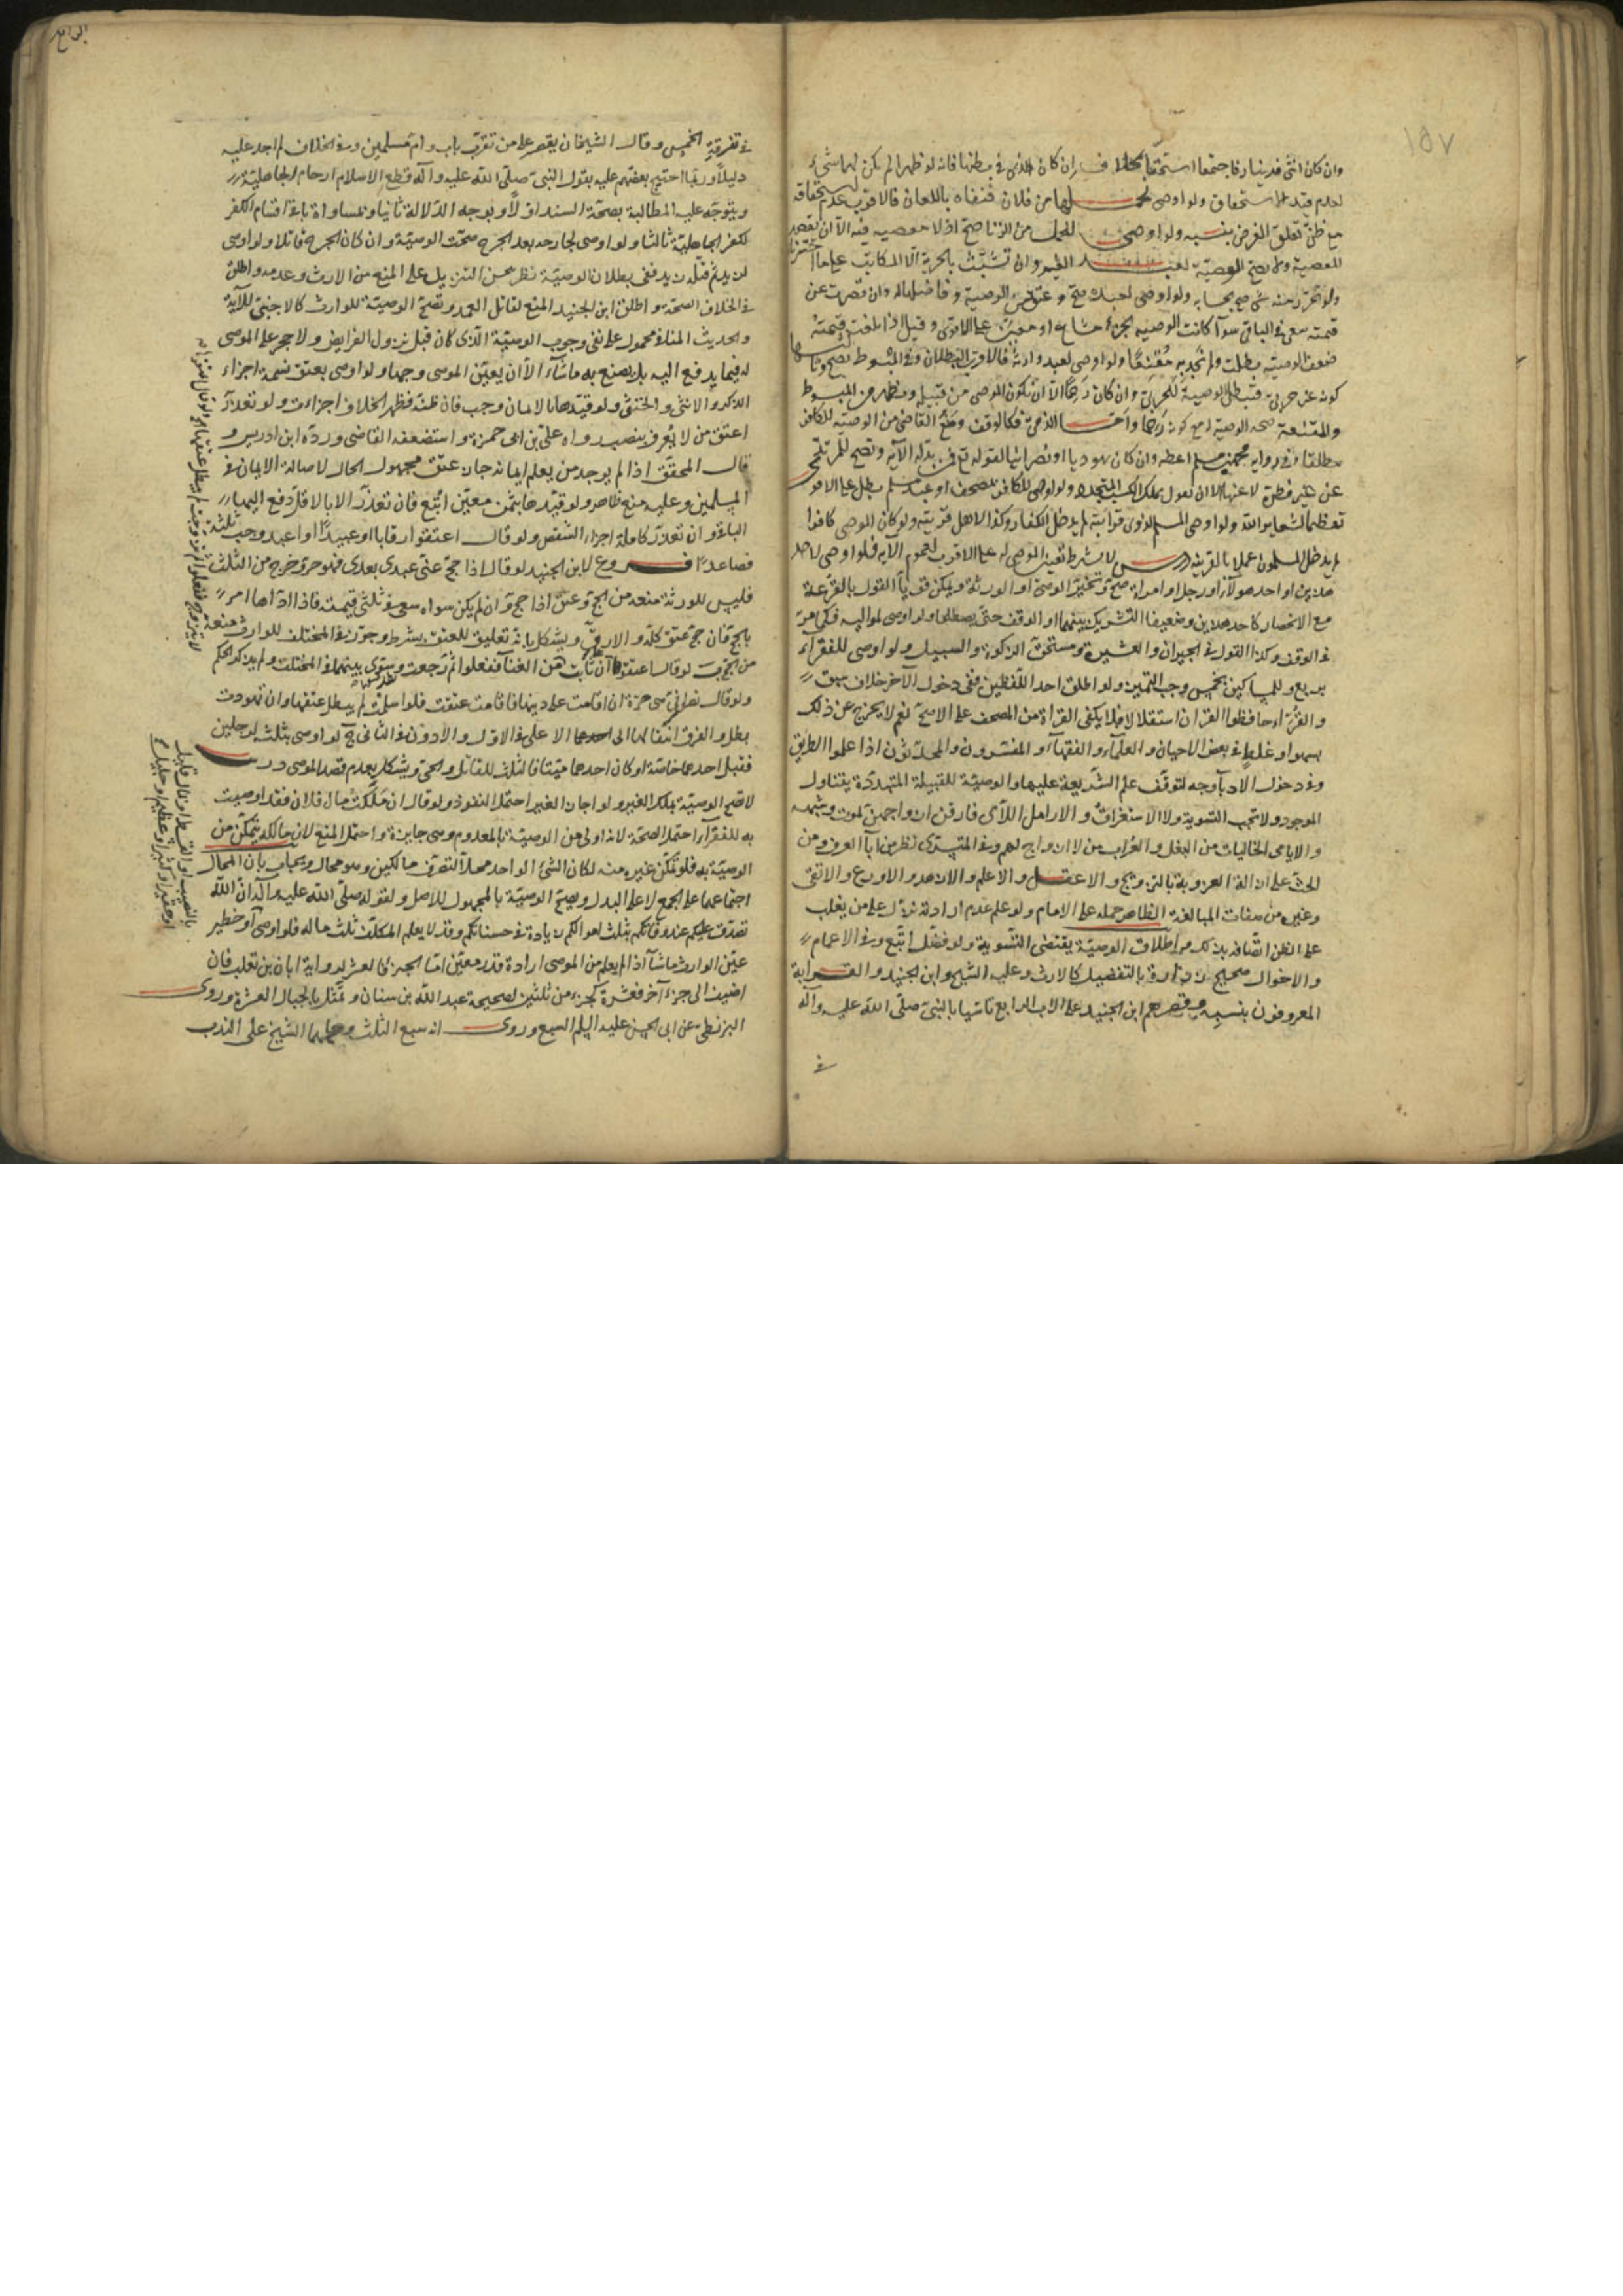 ١٥٧
وان كان انثى فدينار فاجتمعا استحقا ان كان الذى فى بطنها فانه لو ظهرا لم يكن لهما شىء
لعدم قيد الاستحقاق ولو اوصى لحملها من فلان فنفاه باللعان فالاقرب عدم استحقاقه
مع ظن تعلق الغرض بنسبه ولو اوصى للحمل من الزنا صح اذ لا معصيه فيه الا ان يقصد
المعصية ولا تصح الوصية لعبد الغير وان تشبث بالحرية الا المكاتب
ولو تحرر منه شى صح بحسابه ولو اوصى لعبده صح وعتق من الوصية وفاضلها له وان قصرت عن
قيمته سعى فى الباقى سوآ كانت الوصيه بجزء مشاع او معين على الاقوى وقيل اذا بلغت قيمته
ضعف الوصيه بطلت ولم نجد به مقنعا ولو اوصى لعبد وارثه فالاقرب البطلان وفى المبسوط تصح
كونه غير حربى فتبطل الوصية للحربى وان كان رحما الا ان يكون الموصى من قبيله ويظهر من المبسوط
والمقنعة صحه الوصيه له مع كونه رحما واما الذمى فكالوقف ومنع القاضى من الوصيه للكافر
مطلقا وفى روايه محمد بن مسلم اعطه وان كان يهوديا او نصرانيا لقوله تع فمن بدله الآيه وتصح للمرتد
عن غير فطرة لا عنها الا ان نقول بملك الكسب المتجدد ولو اوصى للكافر بمصحف او عبد مسلم بطل على الاقو
تعظيما لشعاير الله ولو اوصى المسلم لذوى قرابته لم يدخل الكفار وكذا لاهل قريته ولو كان الموصى كافرا
لم يدخل المسلمون عملا بالقرينه درس لا يشرط تعين الموصى له على الاقرب لعموم الآيه فلو اوصى لاحد
هذين او احد هولآء او رجل او امراة صح وتخير الوصى او الورثة ويمكن قويا القول بالقرعة
مع الانحصار كاحد هذين وضعيفا التشريك بينهما او الوقف حتى يصطلحا ولو اوصى لمواليه فكما مر
فى الوقف وكذا القول فى الجيران والعشيرة ومستحق الزكوة والسبيل ولو اوصى للفقرآء
بربع وللمساكين بخمس وجب التميز ولو اطلق احد اللفظين ففى دخول الآخر خلاف سبق
والقرآء حافظوا القران استقلالا فلا يكفى القراة من المصحف على الاصح نعم لا يخرج عن ذلك
بسهو او غلط فى بعض الاحيان والعلمآء والفقهآء والمفسرون والمحدثون اذا علموا الطريق
وفى دخول الادبآ وجه لتوقف علم الشريعة عليها والوصية للقبيلة المتبددة يتناول
الموجود ولا تجب التسوية ولا الاستغراق والارامل اللآتى فارقن ازواجهن بموت وشبهه
والايامى الخاليات من البعل والعزاب من لا ازواج لهم وفى المتسرى نظر من اباء العرف ومن
الحث على ازالة العزوبة بالتزويج والاعقل والاعلم والازهد والاورع والاتقى
وغير من صفات المبالغة الظاهر حمله على الامام ولو علم عدم ارادته نزل على من يغلب
على الظن اتصافه بذلك واطلاق الوصية يقتضى التسوية ولو فضل اتبع وفى الاعمام
والاخوال صحيح زرارة بالتفضيل كالارث وعليه الشيخ وابن الجنيد والقرابة
المعروفون بنسبه وقصرهم ابن الجنيد على الاب الرابع تاسيا بالنبى صلى الله عليه وآله
فى
فى تفرقة الخمس وقال الشيخان يقصر على من تقرب باب وام مسلمين وفى الخلاف لم اجد عليه
دليلا وربما احتج بعضهم عليه بقول النبى صلى الله عليه وآله قطع الاسلام ارحام الجاهلية
ويتوجه عليه المطالبة بصحة السند اولا وبوجه الدلالة ثانيا وبمساواة باقى اقسام الكفر
لكفر الجاهلية ثالثا ولو اوصى لجارحه بعد الجرح صحت الوصية وان كان الجرح قاتلا ولو اوصى
لزيد ثم قتله زيد ففى بطلان الوصية نظر من التنزيل على المنع من الارث وعدمه واطلق
فى الخلاف الصحة واطلق ابن الجنيد المنع لقاتل العمد وتصح الوصية للوارث كالاجنبى للآية
والحديث المنافى محمول على نفى وجوب الوصية الذى كان قبل نزول الفرايض ولا حجر على الموصى
له فيما يدفع اليه بل يصنع به ما شآء الا ان يعين الموصى وجها ولو اوصى بعتق نسمة اجزاء
الذكر والانثى والخنثى ولو قيدها بالايمان وجب فان ظنه فظهر الخلاف اجزاءت ولو تعذر
اعتق من لا يعرف بنصب رواه على بن ابى حمزة واستضعفه القاضى ورده ابن ادريس و
قال المحقق اذا لم يوجد من يعلم ايمانه جاز عتق مجهول الحال لاصالة الايمان فى
المسلمين وعليه منع ظاهر ولو قيدها بثمن معين اتبع فان تعذر الا بالاقل دفع اليها
الباقى وان تعذر كاملة اجزاء الشقص ولو قال اعتقوا رقابا او عبيدا او اعبد وجب ثلثة
فصاعدا فروع لابن الجنيد لو قال اذا حج عنى عبدى بعدى فهو حر وخرج من الثلث
فليس للورثة منعه من الحج وعتق اذا حج وان لم يكن سواه سعى فى ثلثى قيمته فاذا اداها امر
بالحج فان حج عتق كله والا رق ويشكل بانه تعليق للعتق بشرط وجوز فى المختلف للوارث منعه
من الحج ب لو قال اعتقوها ان تابت من الغنآء ففعلوا ثم رجعت وسوى بينهما فى المختلف ولم يذكر الحكم
ولو قال نصرانى هى حرة ان اقامت على دينها فاقامت عتقت فلو اسلمت لم يبطل عتقها وان تهودت
بطل والفرق انتقالها الى الاعلى فى الاول والادون فى الثانى ج لو اوصى بثلثه لرجلين
فقبل احدهما خاصة او كان احدهما ميتا فالثلث للقابل والحى ويشكل بعدم قصد الموصى درس
لا تصح الوصية بملك الغير ولو اجاز الغير احتمل النفوذ ولو قال ان ملكت مال فلان فقد اوصيت
به للفقرآء احتمل الصحة لانه اولى من الوصية بالمعدوم وهى جايزة واحتمل المنع لان مالكه يتمكن من
الوصية به فلو تمكن غيره منه لكان الشئ الواحد محلا لتصرف مالكين وهو محال ويجاب بان المحال
اجتماعهما على الجمع لا على البدل ويصح الوصية بالمجهول للاصل ولقوله صلى الله عليه وآله ان الله
تصدق عليكم عند وفاتكم بثلث اموالكم زيادة فى حسناتكم وقد لا يعلم المكلف ثلث ماله فلو اوصى او خطير
عين الوارث ما شآء اذا لم يعلم من الموصى ارادة قدر معين اما الجزء فالعشر لرواية ابان بن تغلب فان
اضيف الى جزء آخر فعشره كجزء من ثلثين لصحيحة عبد الله بن سنان وتمثل بالجبال العشرة وروى
البزنطى عن ابى الحسن عليه السلم السبع وروى انه سبع الثلث وحملهما الشيخ على الندب
بالنصيب او القسط او قال قليل
او حقير او كثير او عظيم او جليل